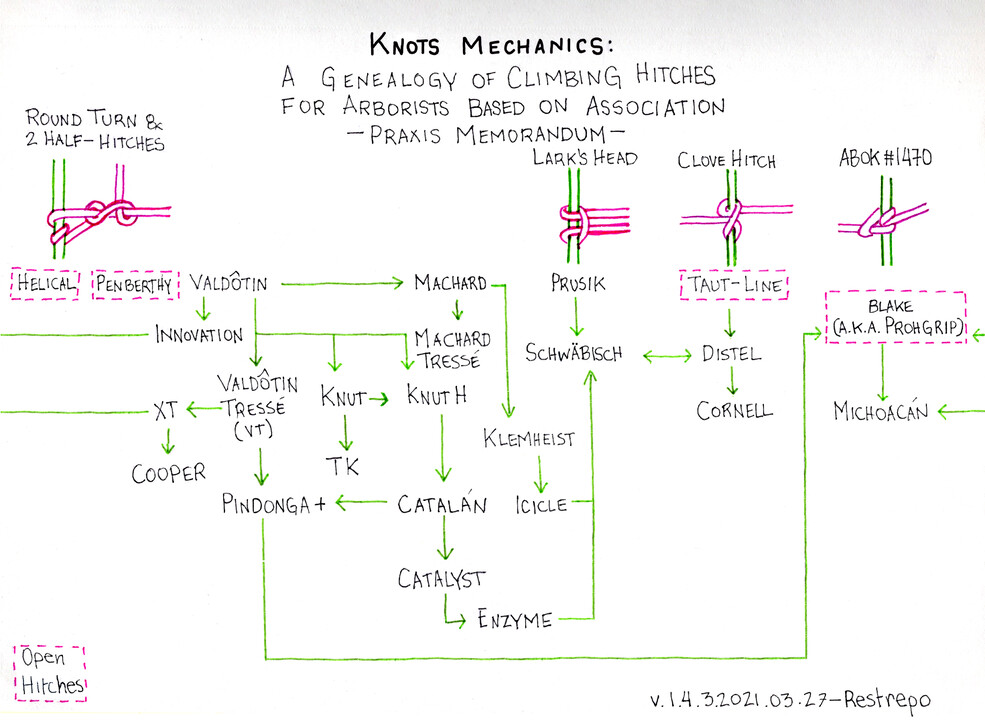 KNOTS MECHANICS:
A GENEALOGY OF CLIMBING HITCHES
FOR ARBORISTS BASED ON ASSOCIATION
-PRAXIS MEMORANDUM-
ROUND TURN &
2 HALF-HITCHES
LARK'S HEAD
CLOVE HITCH
ABOK #1470
HELICAL
PENBERTHY
VALDÔTIN
MACHARD
PRUSIK
TAUT-LINE
BLAKE
(A.K.A. PROHGRIP)
INNOVATION
MACHARD
TRESSÉ
SCHWÄBISCH
DISTEL
VALDÔTIN
TRESSÉ
(VT)
XT
KNUT
KNUT H
CORNELL
MICHOACÁN
KLEMHEIST
COOPER
TK
PINDONGA+
CATALÁN
ICICLE
CATALYST
ENZYME
Open
Hitches
v.1.4.3.2021.03.27-Restrepo